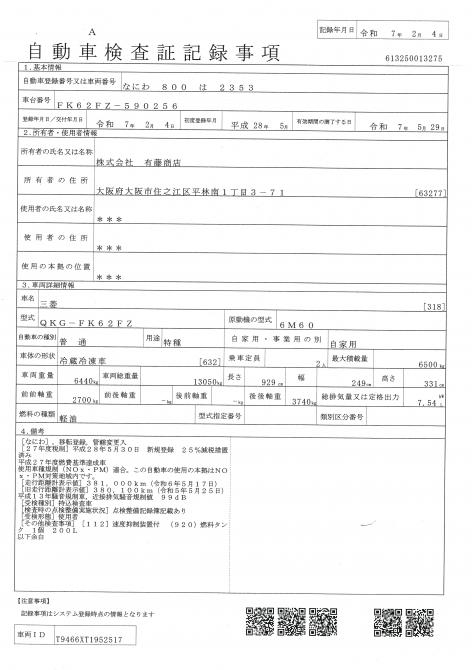 A
記録年月日 令和 7年 2月 4日
自動車検査証記録事項
613250013275
1.基本情報
自動車登録番号又は車両番号 なにわ 800 は 2353
車台番号 FK62FZ-590256
登録年月日/交付年月日 令和 7年 2月 4日 初度登録年月 平成 28年 5月 有効期間の満了する日 令和 7年 5月 29日
2.所有者・使用者情報
所有者の氏名又は名称 株式会社 有藤商店
所有者の住所 大阪府大阪市住之江区平林南1丁目3-71 [63277]
使用者の氏名又は名称 ***
使用者の住所 ***
使用の本拠の位置 ***
3.車両詳細情報
車名 三菱 [318]
型式 QKG-FK62FZ 原動機の型式 6M60
自動車の種別 普通 用途 特種 自家用・事業用の別 自家用
車体の形状 冷蔵冷凍車 [632] 乗車定員 2人 最大積載量 6500kg
車両重量 6440kg 車両総重量 13050kg 長さ 929cm 幅 249cm 高さ 331cm
前前軸重 2700kg 前後軸重 -kg 後前軸重 -kg 後後軸重 3740kg 総排気量又は定格出力 7.54 kW L
燃料の種類 軽油 型式指定番号 類別区分番号
4.備考
[なにわ],移転登録,管轄変更入
[27年度税制]平成28年5月30日 新規登録 25%減税措置
済み
平成27年度燃費基準達成車
使用車種規制(NOx・PM)適合,この自動車の使用の本拠はNO
x・PM対策地域内です。
[走行距離計表示値]381,000km(令和6年5月17日)
[旧走行距離計表示値]380,100km(令和5年5月25日)
平成13年騒音規制車,近接排気騒音規制値 99dB
[受検種別]持込検査車
[検査時の点検整備実施状況]点検整備記録簿記載あり
[受検形態]使用者
[その他検査事項][112]速度抑制装置付 (920)燃料タン
ク 1個 200L
以下余白
【注意事項】
記録事項はシステム登録時点の情報となります
車両ID T9466XT1952517